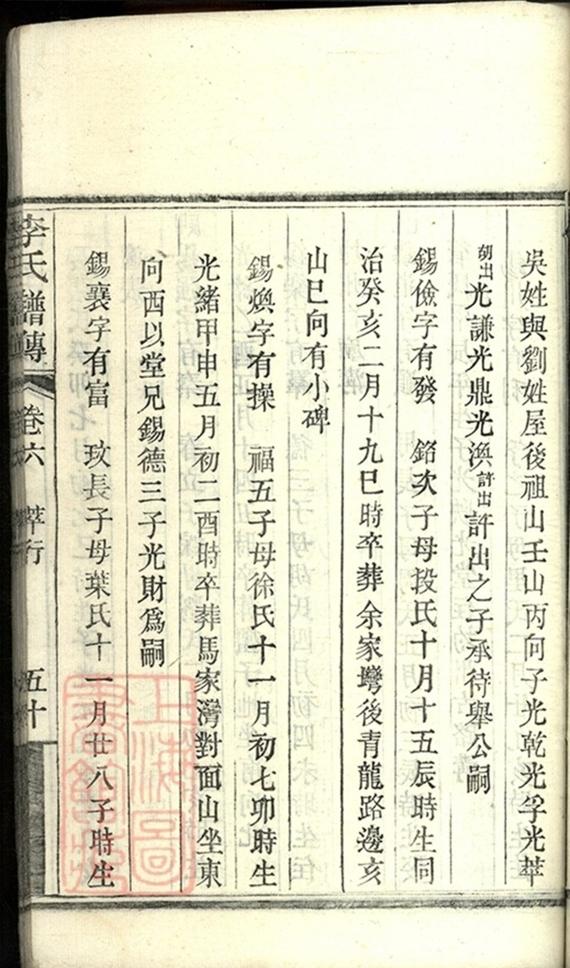 吳姓與劉姓屋後祖山壬山丙向子光乾光孚光萃
胡出光謙光鼎光渙許出許出之子承待舉公嗣
錫儉字有發 銘次子母投氏十月十五辰時生同
治癸亥二月十九巳時卒葬余家塆後青龍路邊亥
山巳向有小碑
錫煥字有操 福五子母徐氏十一月初七卯時生
光緒甲申五月初二酉時卒葬馬家灣對面山坐東
向西以堂兄錫德三子光財爲嗣
錫襄字有富 玫長子母葉氏十一月廿八子時生
李氏譜傳 卷六 萃行 五十
上海圖書館藏